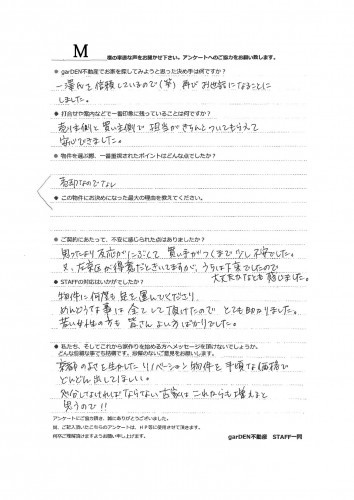 M 様の率直な声をお聞かせ下さい。アンケートへのご協力をお願い致します。
● garDEN不動産でお家を探してみようと思った決め手は何ですか?
一澤氏を信頼しているので(笑) 再びお世話になることに
しました。
● 打合せや案内などで一番印象に残っていることは何ですか?
売り主側と買い主側で担当がきちんとついてもらえて
安心できました。
● 物件を選ぶ際、一番重視されたポイントはどんな点でしたか?
売却なのでなし
● この物件にお決めになった最大の理由を教えてください。
● ご契約にあたって、不安に感じられた点はありましたか?
思ったより反応がにぶくて 買い手がつくまで少し不安でした。
又、左京区が得意だときいてますが、うちは下京でしたので
大丈夫かなとも感じました。
● STAFFの対応はいかがでしたか?
物件に何度も足を運んでくださり
めんどうな事は全てして頂けたので とても助かりました。
若い女性の方も 皆さんよい方ばかりでした。
● 私たち、そしてこれから家作りを始める方へメッセージを頂けないでしょうか。
どんな些細な事でも結構です。忌憚のないご意見をお願いします。
京都のよさを生かした リノベーション物件を手頃な価格で
どんどん出してほしい。
処分しなければならない古家は これからも増えると
思うので!!
アンケートにご協力頂き、誠にありがとうございました。
尚、ご記入頂いたこちらのアンケートは、HP等に使用させて頂きます。
何卒ご理解頂けますようお願い申し上げます。
garDEN不動産 STAFF一同